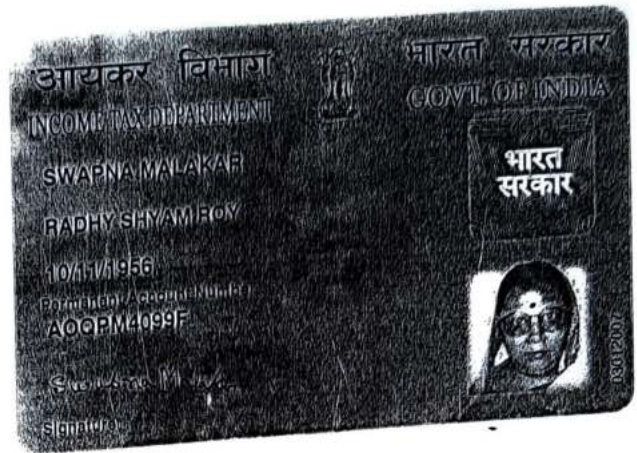 आयकर विभाग
भारत सरकार
INCOME TAX DEPARTMENT
GOVT. OF INDIA
भारत
सरकार
SWAPNA MALAKAR
RADHY SHYAM ROY
10/11/1956
Permanent Account Number
AOQPM4099F
Signature
03012007